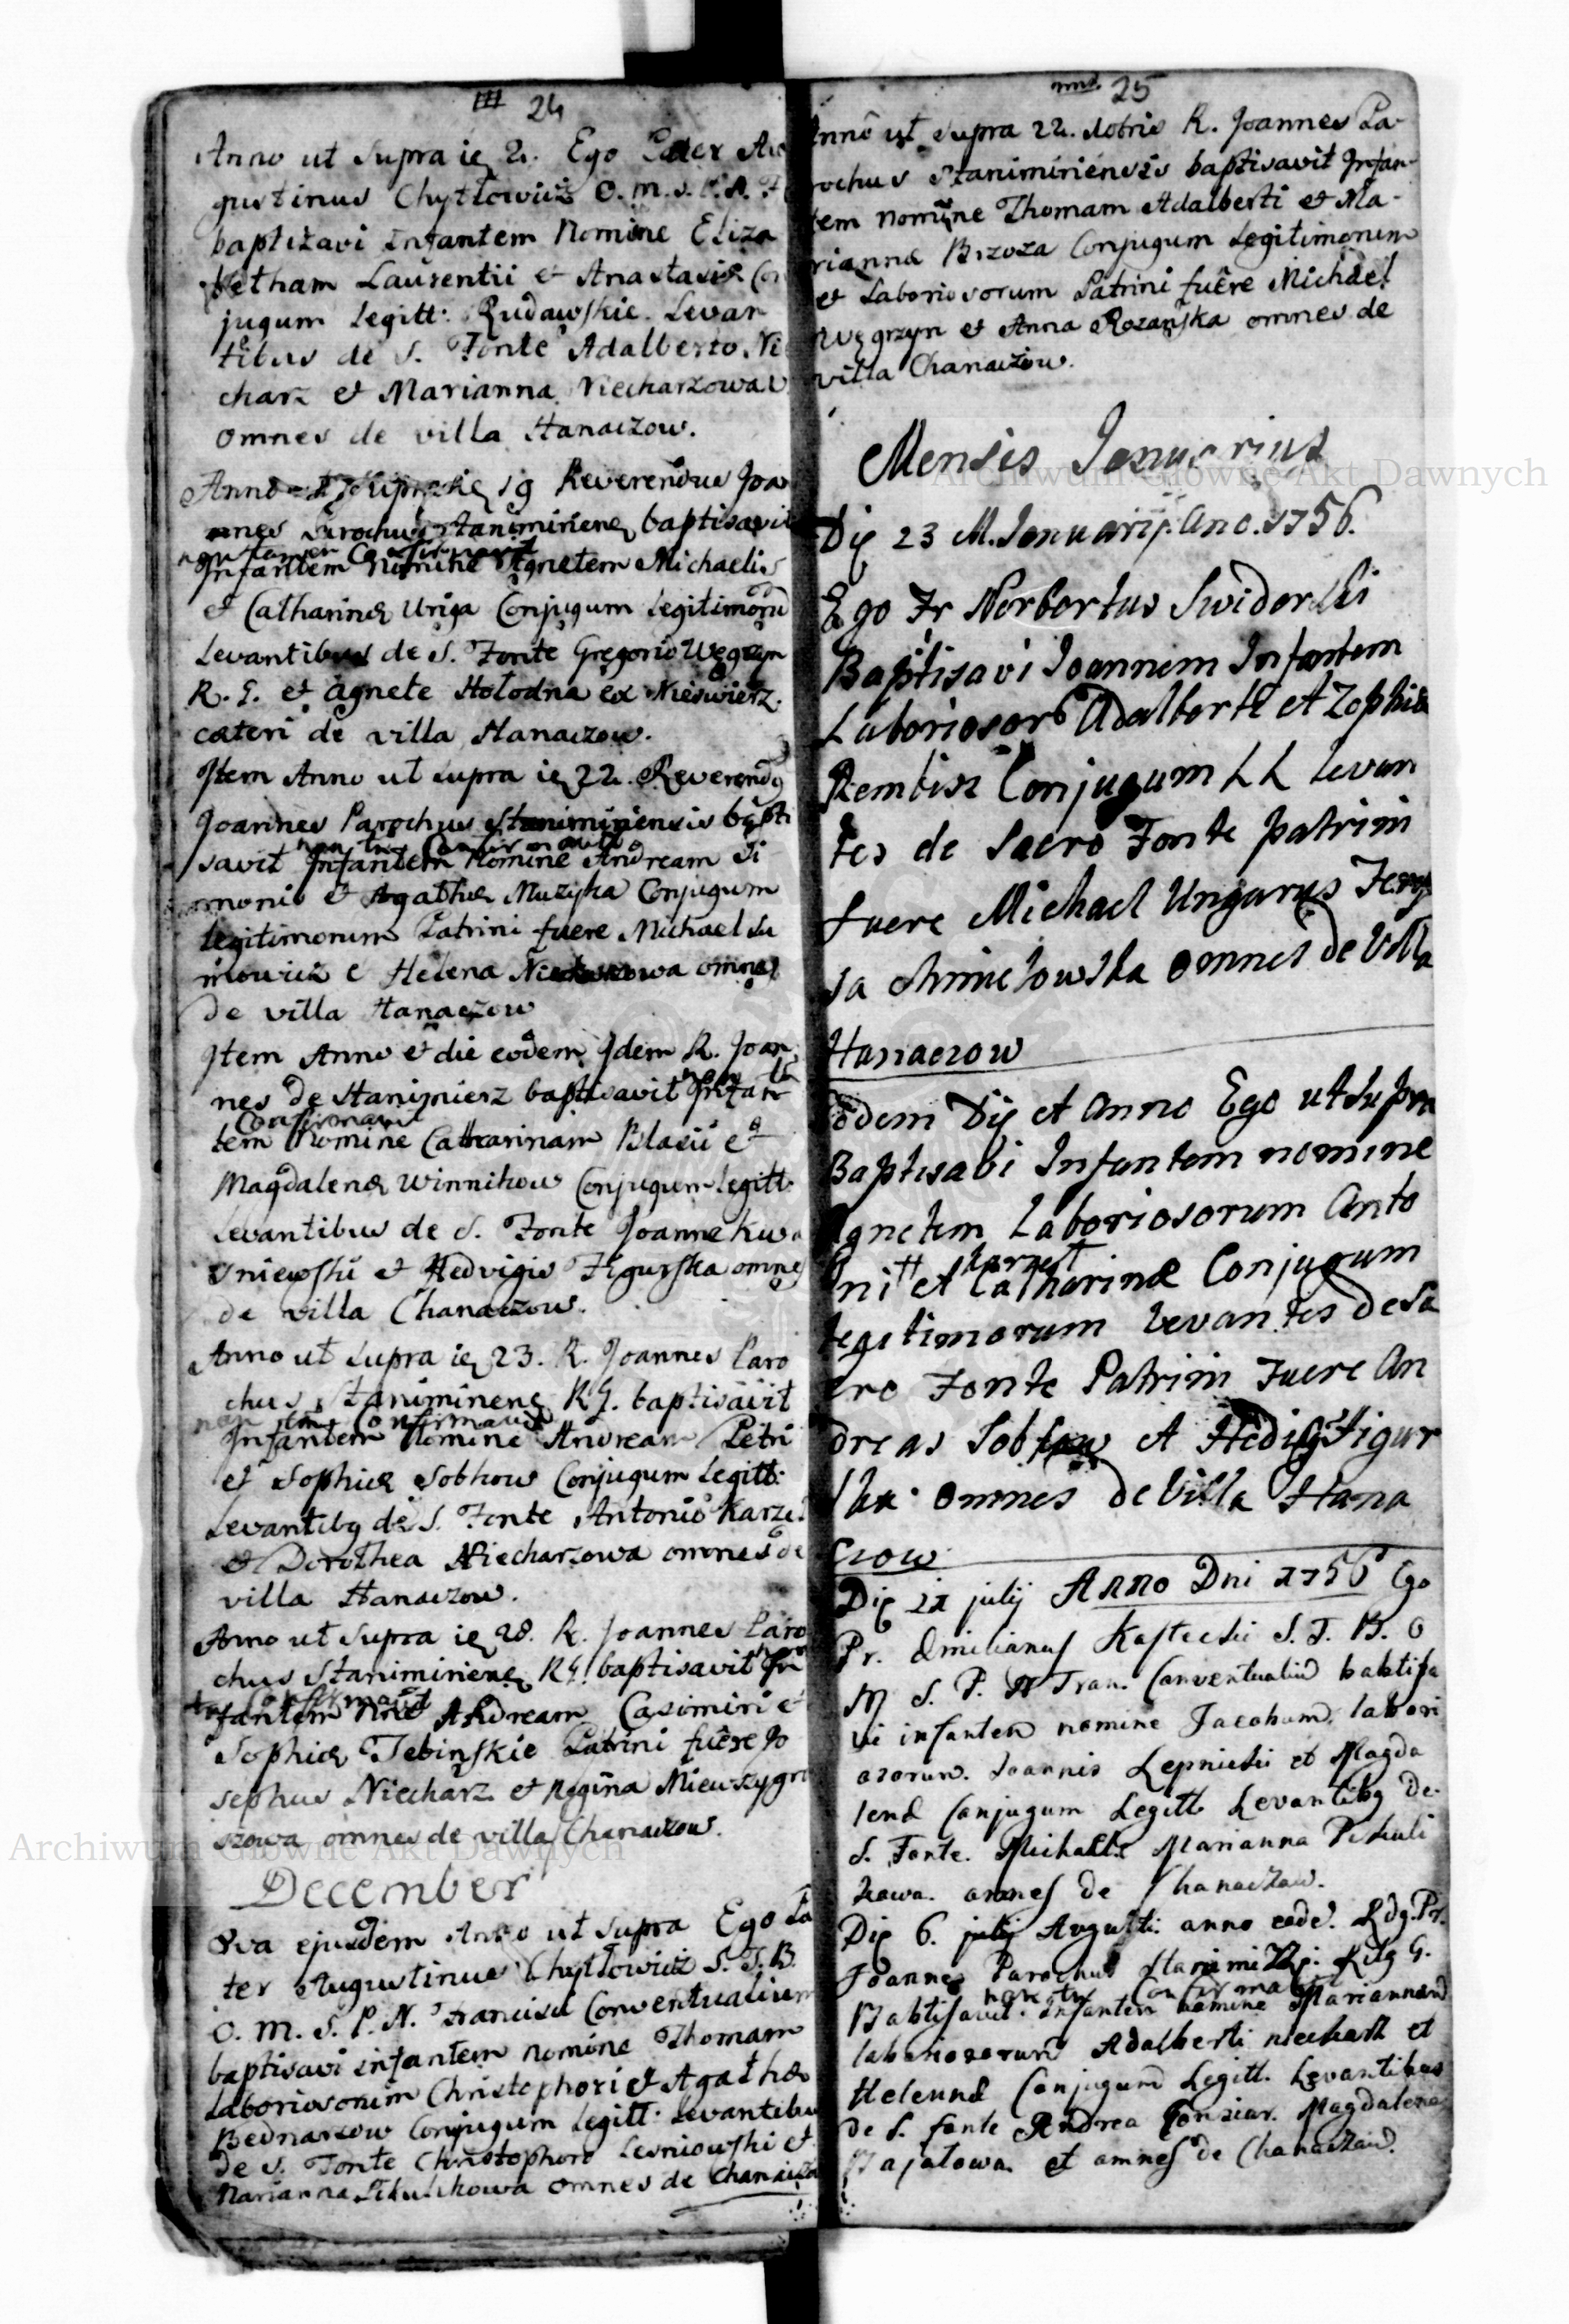 24
Anno ut supra ię 2. Ego Pater Au
gustinus Chytłowicz O. M. S. P. N. F
baptizavi Infantem Nomine Eliza
betham Laurentii et Anastasiæ Con
jugum Legitt: Rudawskie. Levan
tibus de S. Fonte Adalberto Nie
charz et Marianna Niecharzowa
omnes de villa Hanaczow.
Anno ut supra ię 19 Reverendus Joa
nnes Parochus Stanimirienę baptisavit
non tamen Confirmavit
Infantem nomine Agnetem Michaelis
et Catharinæ Uriga Conjugum legitimoru
Levantibus de S. Fonte Gregorio Węgrzyn
R. G. et Agnete Hołodna ex Nieswierz.
cæteri de villa Hanaczow.
Item Anno ut supra ię 22. Reverendg
Joannes Parochus Stanimiriensis bapti
non tn Confirmavit
savit Infantem Nomine Andream Si
monis et Agathæ Muzyka Conjugum
Legitimorum Patrini fuere Michael Su
mowicz e Helena omnes
de villa Hanaczow
Item Anno et die eodem Idem R. Joan
non tn
nes de Stanimierz baptisavit Infan
Confirmavit
tem Nomine Catharinam Blasii et
Magdalenæ Winnikow Conjugum Legitt.
Levantibus de S. Fonte Joanne Kwa
sniewski et Hedvigis Figurska omnes
de villa Chanaczow.
Anno ut supra ię 23. R. Joannes Paro
chus Stanimirienę RG. baptisavit
non tem Confirmavit
Infantem Nomine Andream Petri
et Sophiæ Sobkow Conjugum Legitt:
Levantibg de S. Fonte Antonio Karze
et Dorothea Niecharzowa omnes de
villa Hanaczow.
Anno ut supra ię 28. R. Joannes Paro
chus Stanimirienę RG. baptisavit In
Confirmavit
fantem Nne Andream Casimiri et
Sophiæ Tebinskie Patrini fuere Jo
sephus Niecharz et Regina Miewszygro
szowa omnes de villa Chanaczow.
December
8va ejusdem Anno ut supra Ego Pa
ter Augustinus Chytłowicz S. T. B.
O. M. S. P. N. Francisci Conventualium
baptisavi infantem nomine Thomam
Laboriosorum Christophori et Agathæ
Bednarzow Conjugum Legitt: Levantibus
de S. Fonte Christophoro Lesniowski et
Marianna Pikulikowa omnes de Chanaczo
25
Anno ut supra 22. Xbris R. Joannes Pa-
rochus Stanimiriensis baptisavit Infan-
tem nomine Thomam Adalberti et Ma-
riannæ Brzoza Conjugum Legitimorum
et Laboriosorum Patrini fuêre Michael
Węgrzyn et Anna Rozanska omnes de
villa Chanaczow.
Mensis Januarius
Dię 23 M. Januarij. Ano. 1756.
Ego Fr Norbertus Swiderski
Baptisavi Joannem Infantem
Laboriosor Adalberti et Zophiæ
Rembisz Conjugum LL Levan
tes de Sacro Fonte patrini
fuere Michael Ungarus
sa omnes de Villa
Hanaczow
Eodem Dię et Anno Ego ut supra
Baptisavi Infantem nomine
Agnetem Laboriosorum Anto
nii et Catharinæ Conjugum
Legitimorum Levantes de Sa
cro Fonte Patrini Fuere An
dreas Sobkow et Hedig Figur
ska omnes de Villa Hana
czow
Dię 21 julij Anno Dni 1756 Ego
Pr. Emilianus Kastecki S. T. B. O
M S. P. N Fran. Conventualiu babtisa
vi infantem nomine Jacobum labori
osorum. Joannis Lepnicki et Magda
lenæ Conjugum Legitt. Levantibg de
S. Fonte. Michaele Marianna Pikuli
kowa. omnes de Chanaczow.
Dię 6. julij Augusti. anno eode. Rdg. Pr.
Joannes Parochus Ritg G.
non tn Confirmavit
Babtisavit. infantem nomine Mariannam
laboriosorum Adalberti niecharz et
Helennæ Conjugum Legitt. Levantibus
de S. fonte Andrea Magdalena
et omnes de Chanaczow.
Archiwum Główne Akt Dawnych
Archiwum Główne Akt Dawnych